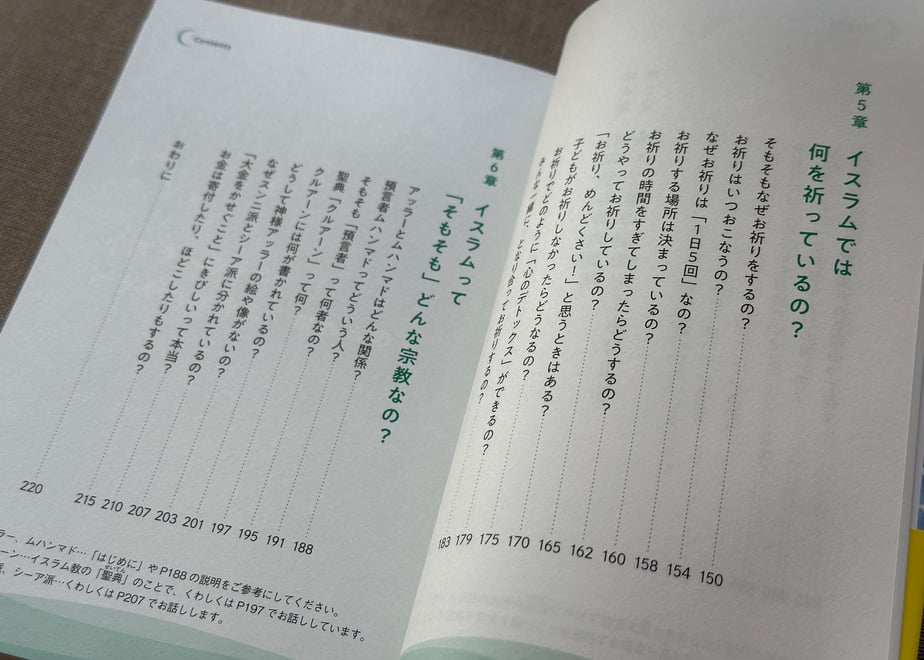 第5章 イスラムでは
何を祈っているの？
そもそもなぜお祈りをするの？ 150
お祈りはいつおこなうの？ 154
なぜお祈りは「1日5回」なの？ 158
お祈りする場所は決まっているの？ 160
お祈りの時間をすぎてしまったらどうするの？ 162
どうやってお祈りしているの？ 165
「お祈り、めんどくさい！」と思うときはある？ 170
子どもがお祈りしなかったらどうなるの？ 175
お祈りでどのように「心のデトックス」ができるの？ 179
みんな一緒に、となり合ってお祈りするの？ 183
Contents
第6章 イスラムって
「そもそも」どんな宗教なの？
アッラーとムハンマドはどんな関係？ 188
預言者ムハンマドってどういう人？ 191
そもそも「預言者」って何者なの？ 195
聖典「クルアーン」って何？ 197
クルアーンには何が書かれているの？ 201
どうして神様アッラーの絵や像がないの？ 203
なぜスンニ派とシーア派に分かれているの？ 207
「大金をかせぐこと」にきびしいって本当？ 210
お金は寄付したり、ほどこしたりもするの？ 215
おわりに 220
ラー、ムハンマド…「はじめに」やP188の説明をご参考にしてください。
ーン…イスラム教の「聖典」のことで、くわしくはP197でお話ししています。
派、シーア派…くわしくはP207でお話しします。